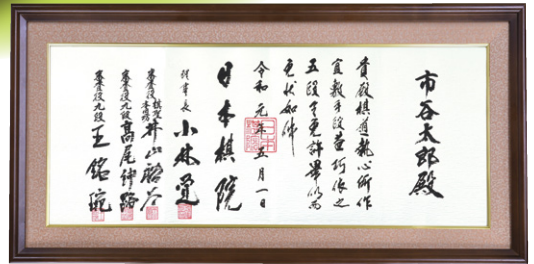 市谷太郎殿
貴殿棋道執心所作
宜敷手段漸巧依之
五段令免許畢仍而
免状如件
令和元年五月一日
日本棋院
理事長 小林覚
審査役 棋聖 本因坊 井山裕太
審査役九段 高尾紳路
審査役九段 王銘琬